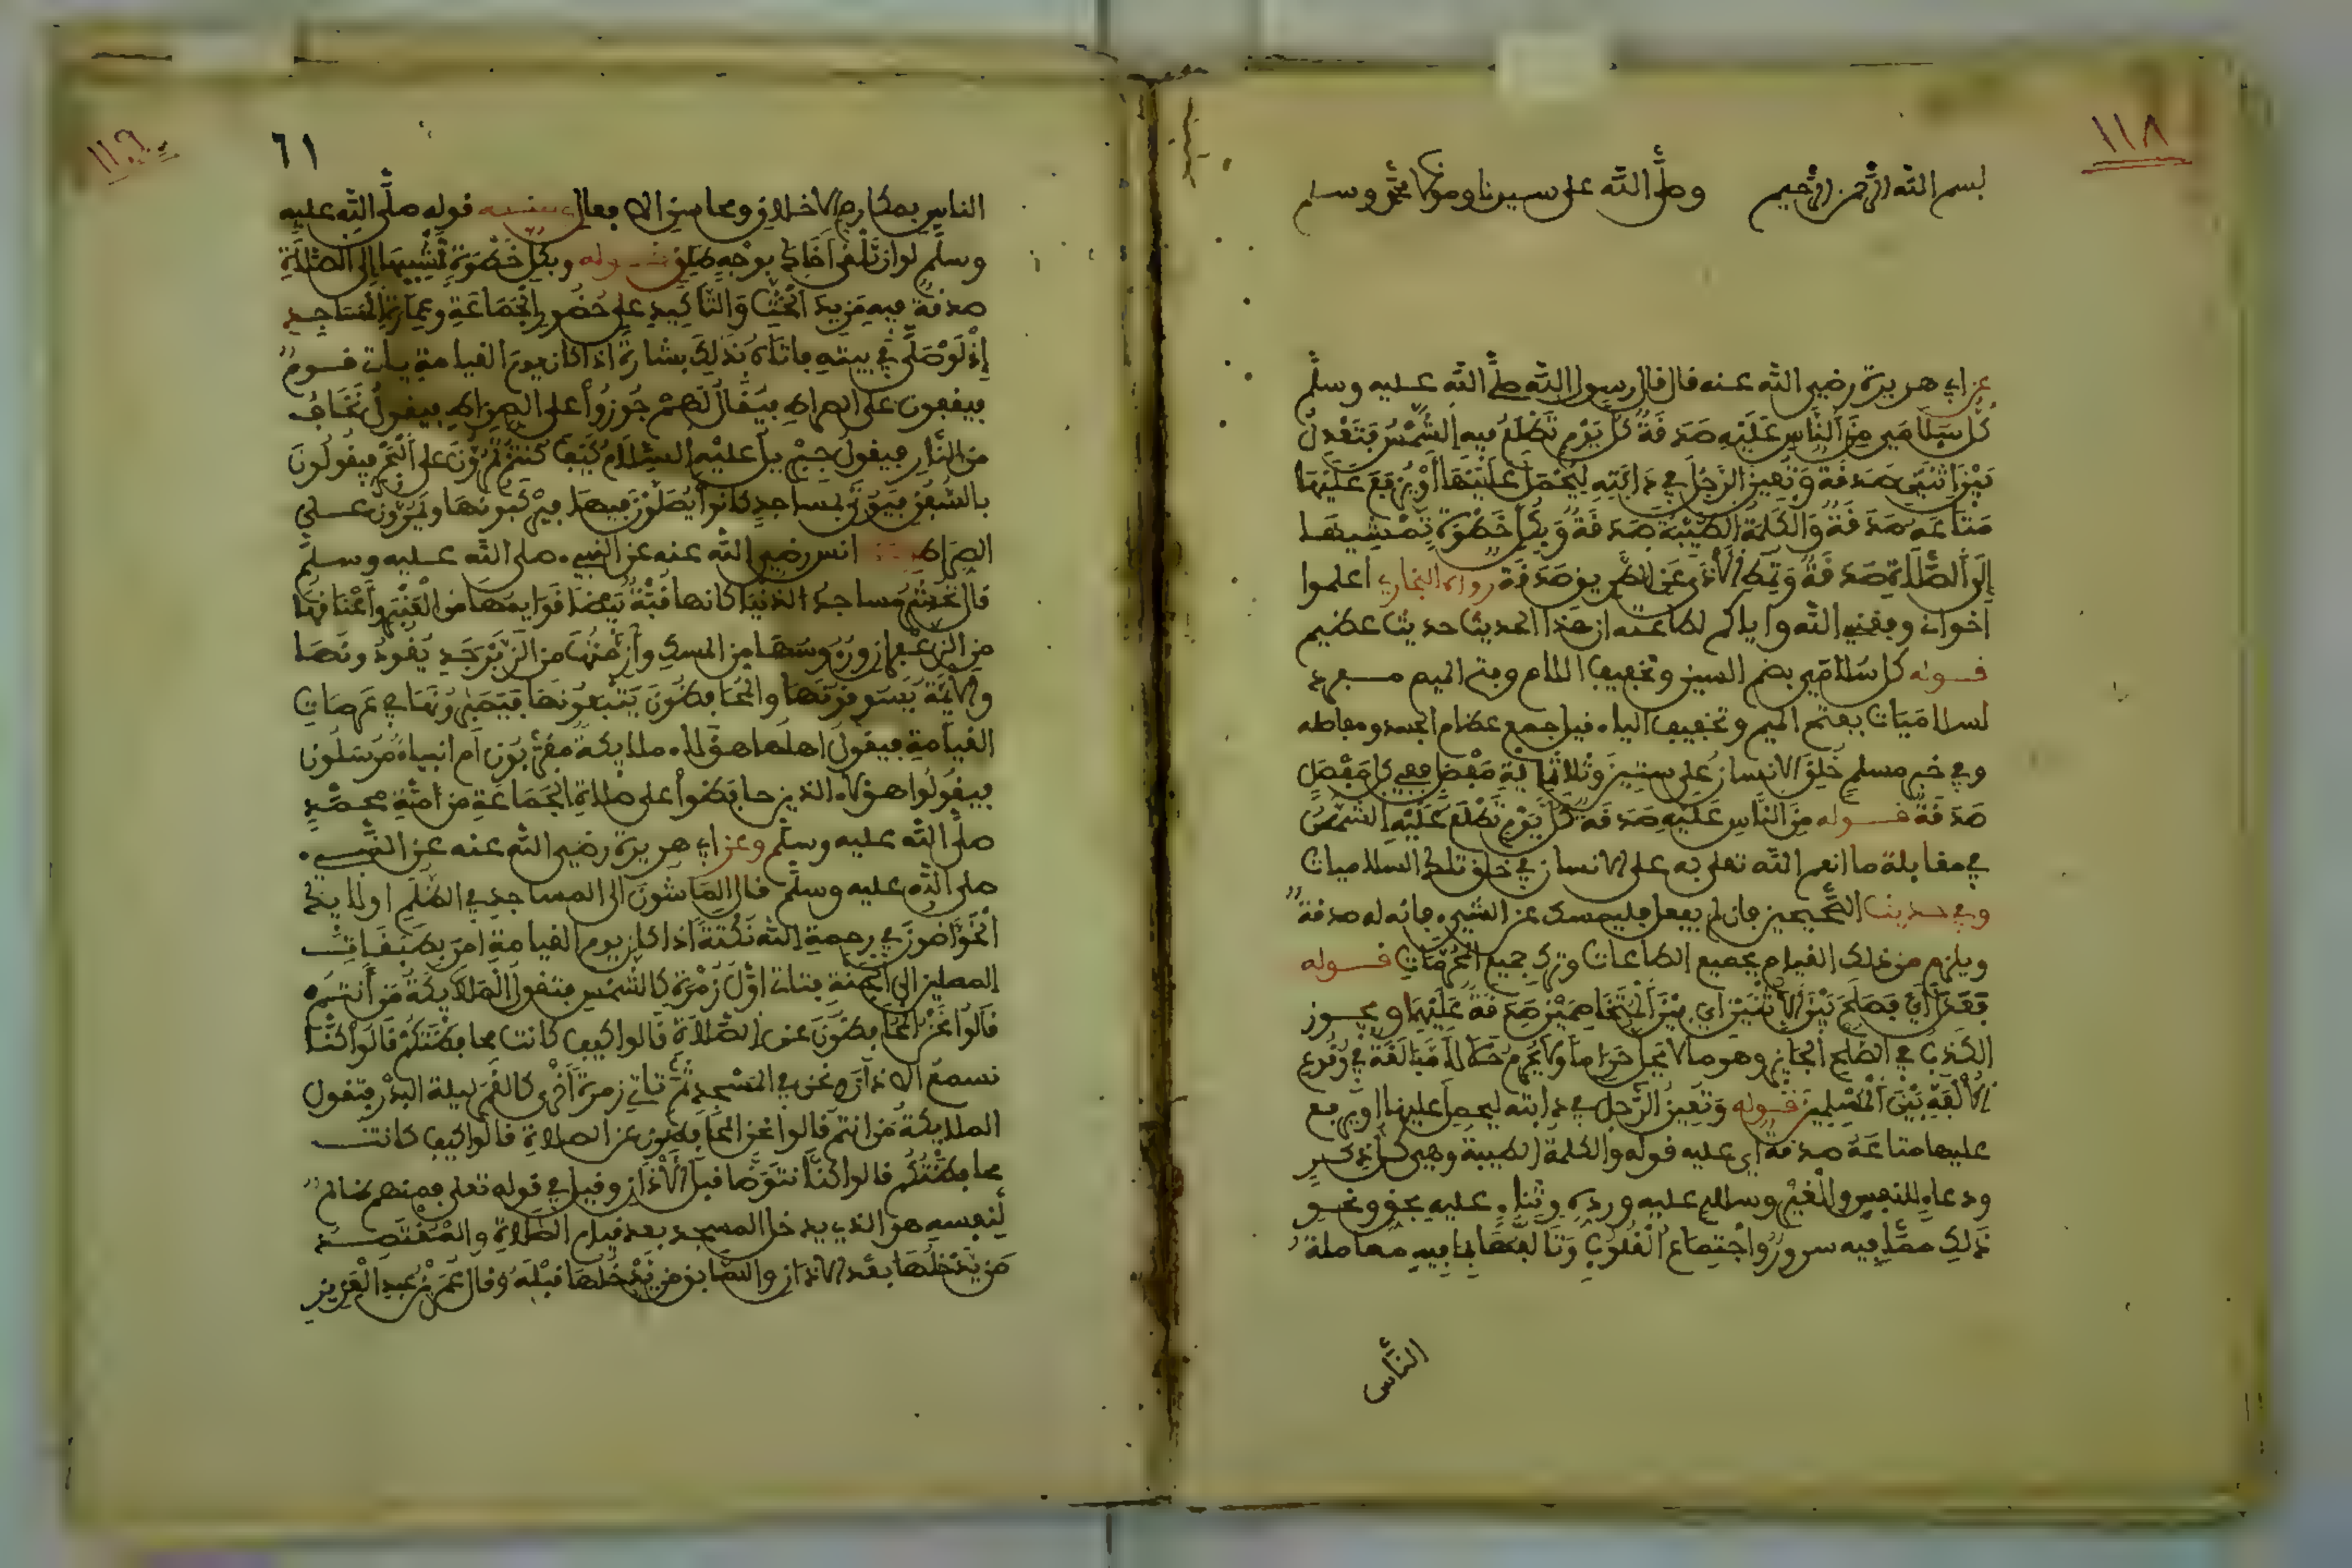 ١١٨
بسم الله الرحمن الرحيم وصلى الله على سيدنا ومولانا محمد وسلم
عن ابي هريرة رضي الله عنه قال قال رسول الله صلى الله عليه وسلم
كل سُلَامَى مِنَ النَّاسِ عَلَيْهِ صَدَقَةٌ كُلَّ يَوْمٍ تَطْلُعُ فيه الشَّمْسُ تَعْدِلُ
بَيْنَ اثْنَيْنِ صَدَقَةٌ وَتُعِينُ الرَّجُلَ فِي دَابَّتِهِ لِيَحْمِلَ عَلَيْهَا أَوْ يَرْفَعَ عَلَيْهَا
مَتَاعَهُ صَدَقَةٌ وَالْكَلِمَةُ الطَّيِّبَةُ صَدَقَةٌ وَبِكُلِّ خَطْوَةٍ تَمْشِيهَا
إِلَى الصَّلَاةِ صَدَقَةٌ وَتُمِيطُ الْأَذَى عَنِ الطَّرِيقِ صَدَقَة رواه البخاري اعلموا
اخواني وفقني الله واياكم لطاعته ان هذا الحديث حديث عظيم
قوله كل سُلَامَى بضم السين وتخفيف اللام وفتح الميم مفرد
لسلامَيَات بفتح الميم وتخفيف الياء قيل جمع عظام الجسد ومفاصله
وفي خبر مسلم خُلِقَ الانسانُ على ستين وثلاثمائة مَفْصِلٍ ففي كل مَفْصِلٍ
صَدَقَةٌ قوله مِنَ النَّاسِ عَلَيْهِ صَدَقَةٌ كُلَّ يَوْمٍ تَطْلُعُ عَلَيْهِ الشَّمْسُ
في مقابلة ما انعم الله تعلى به على الانسان في خلق تلك السلاميات
وفي حديث الصحيحين فان لم يفعل فليمسك عن الشر فانه له صدقة
ويلزم من ذلك القيام بجميع الطاعات وترك جميع المحرمات قوله
أَيْ يُصْلِحُ بَيْنَ الْاثْنَيْنِ أي بَيْنَ الْمُتَخَاصِمَيْنِ صَدَقَةٌ عَلَيْهِمَا ويجوز
الكذب في الصلح الجائز وهو ما لا يحل حَرَاماً ولا يُحَرِّمُ حَلَالاً مُبَالَغَةً في وقوع
الْأُلْفَةِ بَيْنَ الْمُسْلِمِينَ قوله وَتُعِينُ الرَّجُلَ في دابته ليحمل عليها او يرفع
عليها متاعَهُ صدقةٌ أي عليه قوله والكلمة الطيبة وهي كل ذكر
ودعاء للنفس والغير وسلام عليه ورده وثناء عليه بحق ونحو
ذلك مما فيه سرور واجتماع القلوب وتألفها بما فيه معاملة
النَّاس
١١٩
٦١
الناس بمكارم الاخلاق ومحاسن الافعال قوله صلى الله عليه
وسلم لو ان تَلْقَى أَخَاكَ بوجه طلق قوله وبكل خطوة تمشيها إلى الصلاة
صدقة فيه مزيد الحث والتأكيد على حضور الجماعة وعمارة المساجد
إذ لو صلى في بيته فاته ذلك بشارة اذا كان يوم القيامة يأتي قوم
فيقفون على الصراط فيقال لهم جُوزُوا على الصراط فيقول نخاف
من النار فيقول جبريل عليه السلام كيف كنتم تمرون على البحر فيقولون
بالسُّفُن فيؤتى بمساجد كانوا يصلون فيها فيركبونها ويمرون على
الصراط انس رضي الله عنه عن النبي صلى الله عليه وسلم
قال تُحْشَرُ مساجد الدُّنيا كانها بيضا قوايمها من العنبر وأعناقها
من الزعفران ورءوسها من المسك وأزمتها من الزبرجد يقودونها
والائمة يسوقونها والمحافظون يتبعونها في عرصات
القيامة فيقول اهلها هؤلاء ملايكة مقربون أم انبياء مرسلون
فيقولوا هؤلاء الذين حافظوا على صلاة الجماعة من أمة محمد
صلى الله عليه وسلم وعن ابي هريرة رضي الله عنه عن النبي
صلى الله عليه وسلم قال المَاشُونَ الى المساجد في الظلم اولايك
الخَوَّاضون في رحمة الله نكتة اذا كان يوم القيامة أمر بطبقات
المصلين الى الجنة فتأتي اول زمرة كالشمس فتقول الملايكة من أنتم
قالوا نحن المحافظون على الصلاة قالوا كيف كانت محافظتكم قالوا كنا
نسمع الاذان ونحن في المسجد ثم تأتي زمرة أخرى كالقمر ليلة البدر فتقول
الملايكة من انتم قالوا نحن المحافظون عن الصلاة قالوا كيف كانت
محافظتكم قالوا كنا نتوضا قبل الأذان وقيل في قوله تعلى فمنهم ظالم
لنفسه هو الذي يدخل المسجد بعد قيام الصلاة والمقتصد
من يدخلها بعد الاذان والسابق من يدخلها قبله وقال عمر بن عبد العزيز